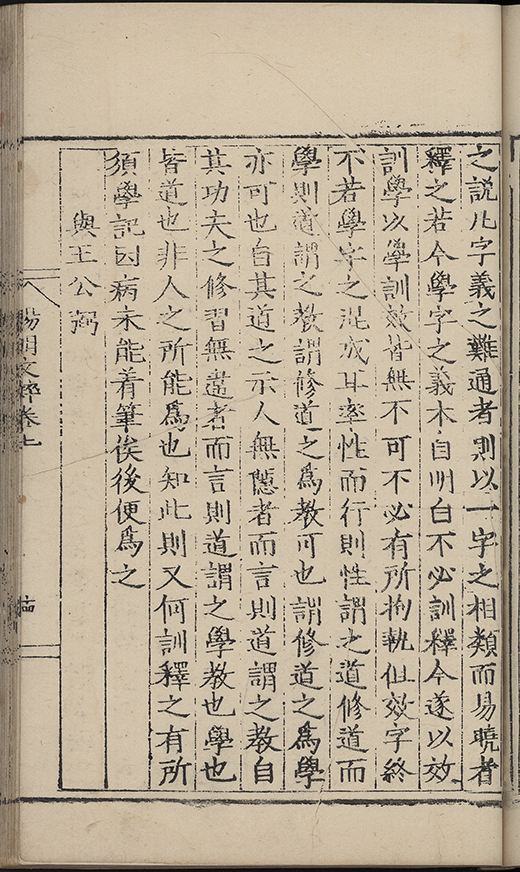 之説凡字義之難通者則以一字之相類而易曉者
釋之若今學字之義本自明白不必訓釋今遂以效
訓學以學訓效皆無不可不必有所拘執但效字終
不若學字之混成耳率性而行則性謂之道修道而
學則道謂之教謂修道之爲教可也謂修道之爲學
亦可也自其道之示人無隱者而言則道謂之教自
其功夫之修習無違者而言則道謂之學教也學也
皆道也非人之所能爲也知此則又何訓釋之有所
須學記因病未能着筆俟後便爲之
與王公弼
陽明文粹卷七